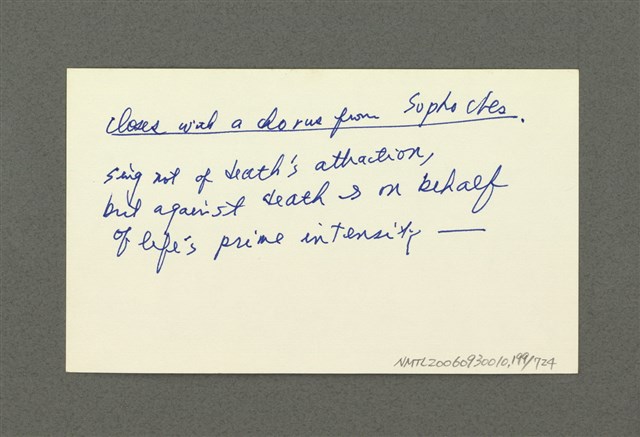 closes with a chorus from Sophocles.
sing not of death's attraction,
but against death & on behalf
of life's prime intensity —
NMTL20060930010,199/724